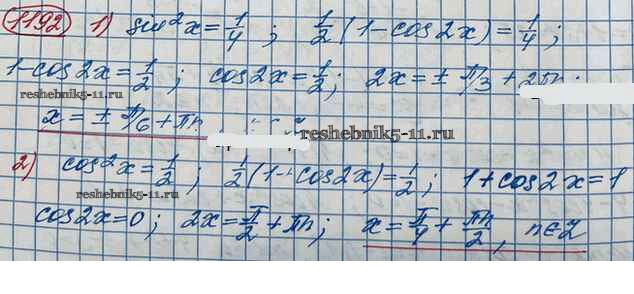 1192 1) sin²x = 1/4 ; 1/2 (1 - cos2x) = 1/4 ;
1 - cos2x = 1/2 ; cos2x = 1/2 ; 2x = ± π/3 + 2πn
reshebnik5-11.ru
x = ± π/6 + πn
reshebnik5-11.ru
2) cos²x = 1/2 ; 1/2 (1 + cos2x) = 1/2 ; 1 + cos2x = 1
reshebnik5-11.ru
cos2x = 0 ; 2x = π/2 + πn ; x = π/4 + πn/2 , n∈Z